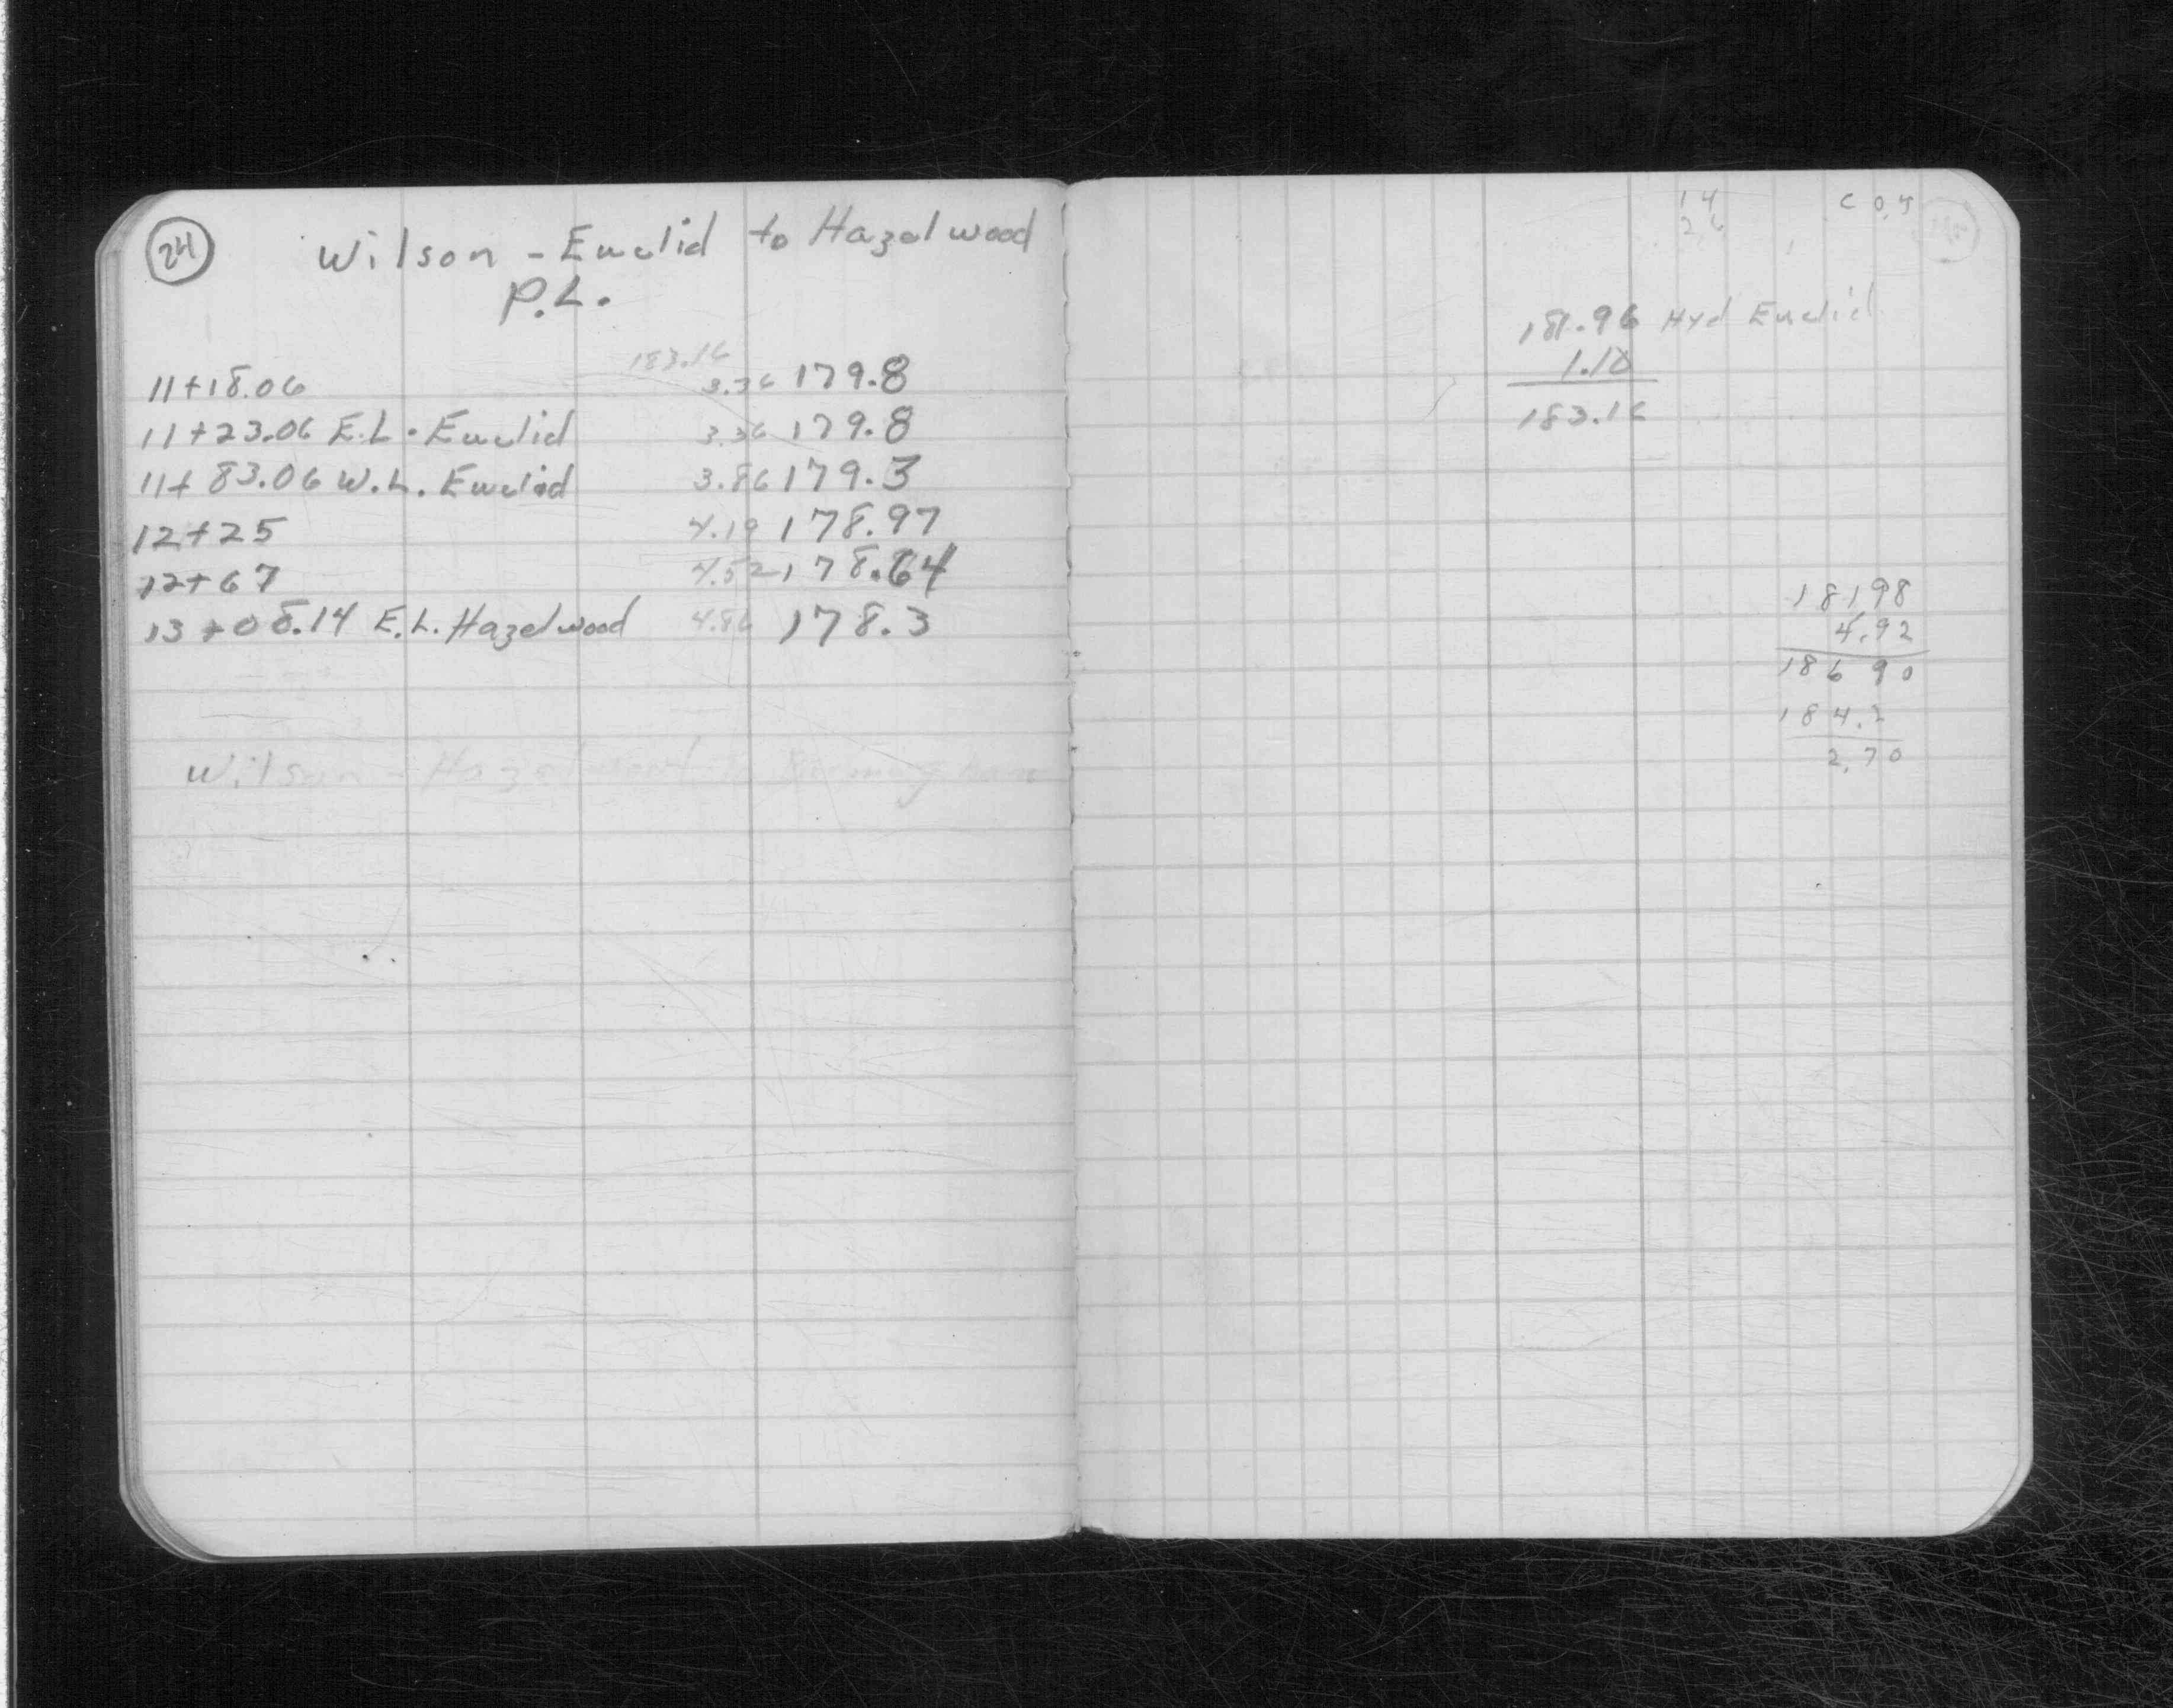 24
Wilson - Euclid to Hazelwood
P.L.
183.16
11+18.06 3.36 179.8
11+23.06 E.L. Euclid 3.36 179.8
11+83.06 W.L. Euclid 3.86 179.3
12+25 4.19 178.97
12+67 4.52 178.64
13+08.14 E.L. Hazelwood 4.86 178.3
Wilson - Hazelwood to
14 C 0.5
26
181.96 Hyd Euclid
1.10
183.16
18198
4.92
186 90
184.2
2.70